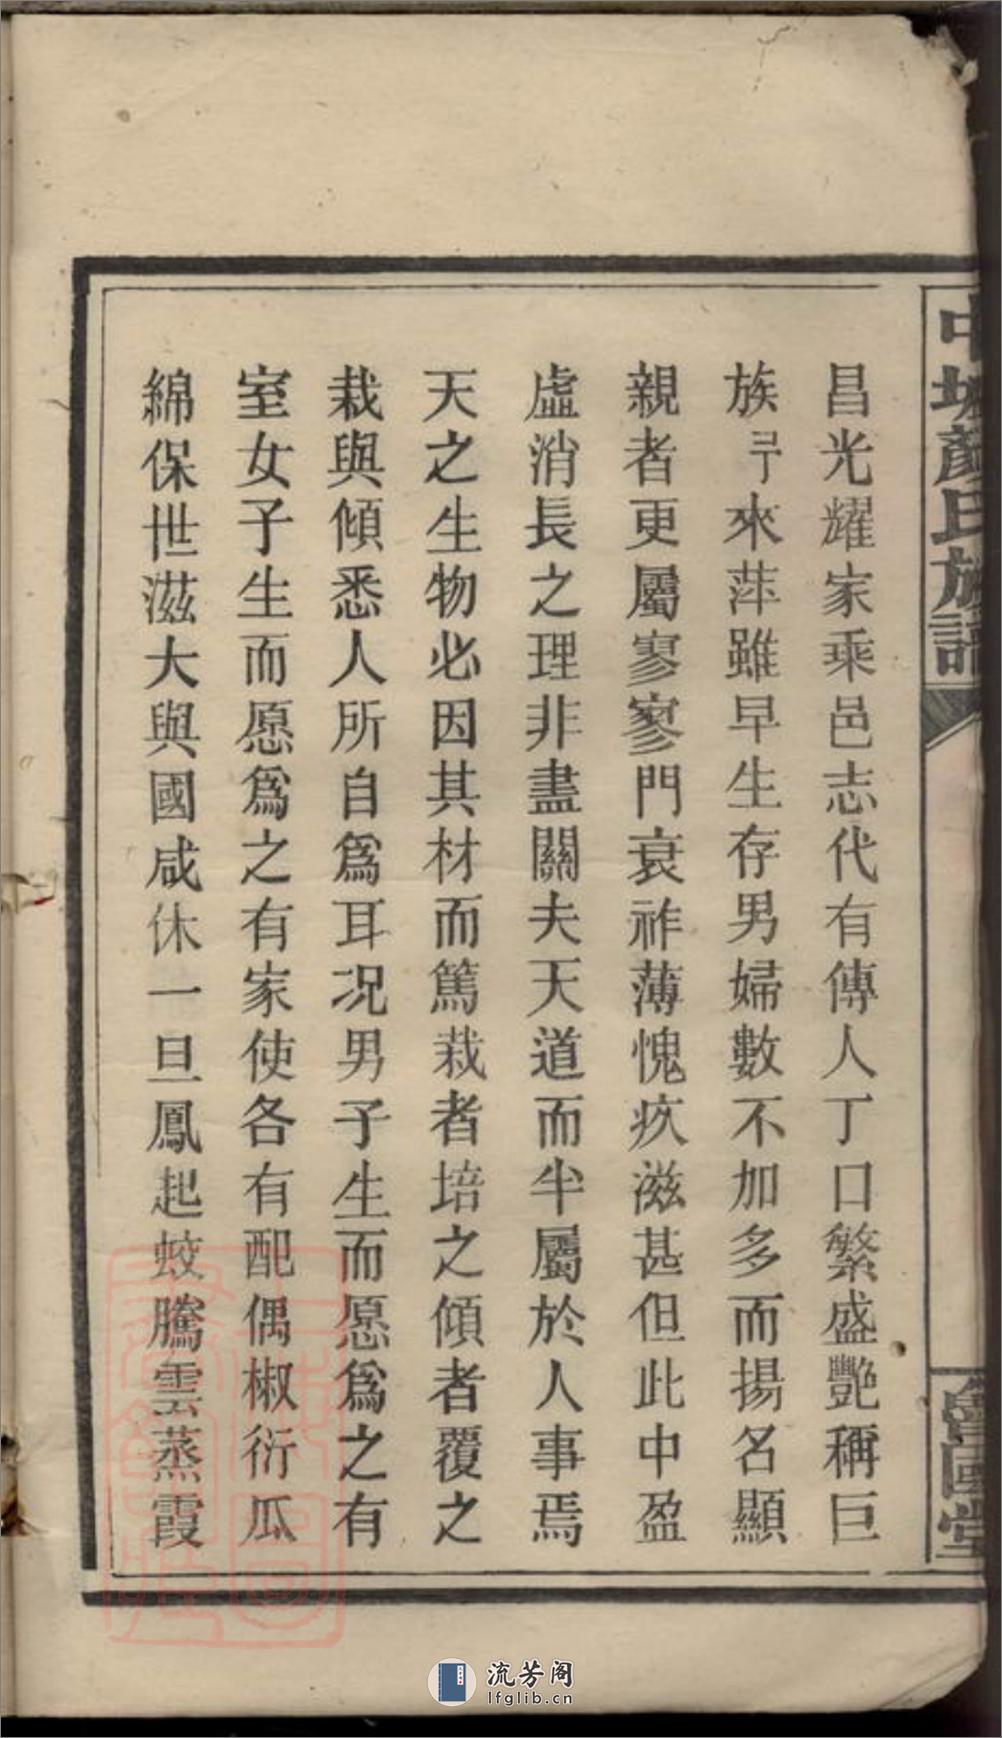 中坡顏氏族譜
魯國堂
昌光耀家乘邑志代有傳人丁口繁盛艷稱巨
族弓來萍雖早生存男婦數不加多而揚名顯
親者更屬寥寥門衰祚薄愧疚滋甚但此中盈
虛消長之理非盡關夫天道而半屬於人事焉
天之生物必因其材而篤栽者培之傾者覆之
栽與傾悉人所自爲耳况男子生而愿爲之有
室女子生而愿爲之有家使各有配偶椒衍瓜
綿保世滋大與國咸休一旦鳳起蛟騰雲蒸霞
流芳阁
lfglib.cn